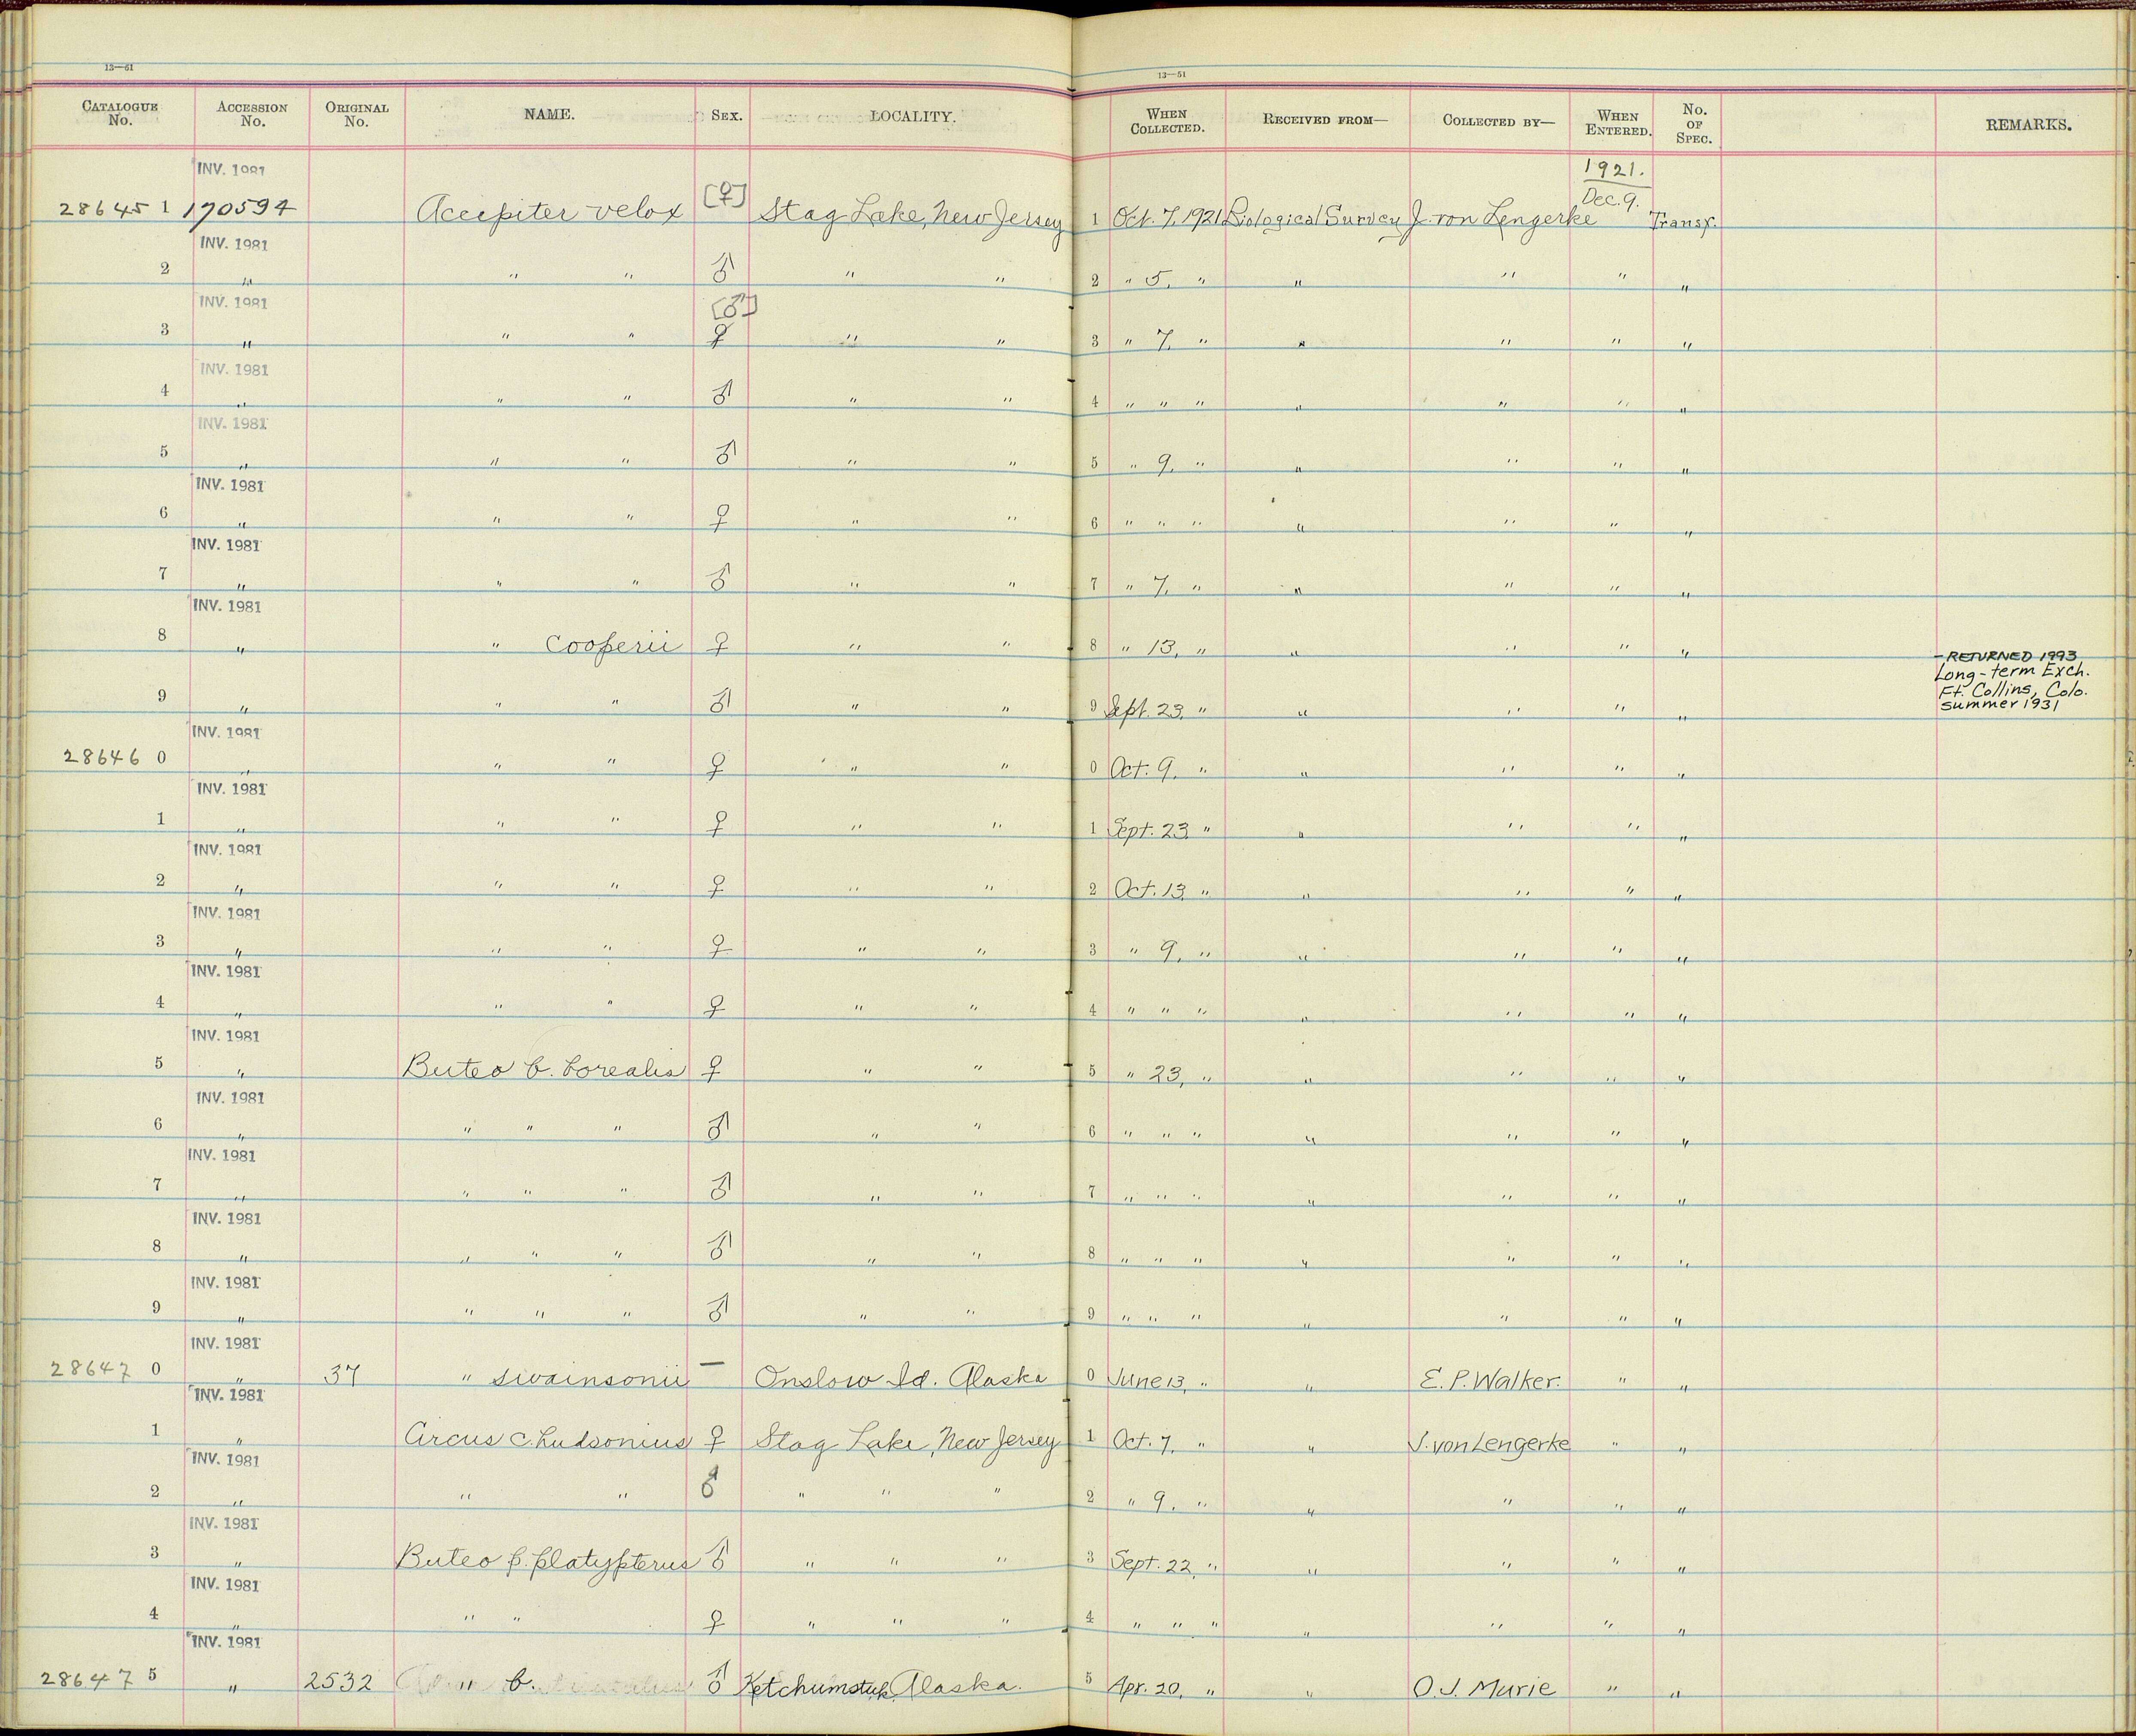 13—51 13—51
CATALOGUE No. ACCESSION No. ORIGINAL No. NAME. SEX. LOCALITY. WHEN COLLECTED. RECEIVED FROM— COLLECTED BY— WHEN ENTERED. No. OF SPEC. REMARKS.
INV. 1981 1921.
28645 1 170594 Accipiter velox [♀] Stag Lake, New Jersey 1 Oct. 7, 1921 Biological Survey J. von Lengerke Dec. 9. Transf.
INV. 1981
2 " " " ♂ " " 2 " 5, " " " " "
INV. 1981 [♂]
3 " " " ♀ " " 3 " 7, " " " " "
INV. 1981
4 " " " ♂ " " 4 " " " " " " "
INV. 1981
5 " " " ♂ " " 5 " 9, " " " " "
INV. 1981
6 " " " ♀ " " 6 " " " " " " "
INV. 1981
7 " " " ♂ " " 7 " 7, " " " " "
INV. 1981
8 " " Cooperii ♀ " " 8 " 13, " " " " "
- RETURNED 1993
Long-term Exch.
Ft. Collins, Colo.
summer 1931
9 " " " ♂ " " 9 Sept. 23, " " " " "
INV. 1981
28646 0 " " " ♀ " " 0 Oct. 9, " " " " "
INV. 1981
1 " " " ♀ " " 1 Sept. 23, " " " " "
INV. 1981
2 " " " ♀ " " 2 Oct. 13, " " " " "
INV. 1981
3 " " " ♀ " " 3 " 9, " " " " "
INV. 1981
4 " " " ♀ " " 4 " " " " " " "
INV. 1981
5 " Buteo b. borealis ♀ " " 5 " 23, " " " " "
INV. 1981
6 " " " " ♂ " " 6 " " " " " " "
INV. 1981
7 " " " " ♂ " " 7 " " " " " " "
INV. 1981
8 " " " " ♂ " " 8 " " " " " " "
INV. 1981
9 " " " " ♂ " " 9 " " " " " " "
INV. 1981
28647 0 " 37 " swainsonii — Onslow Id. Alaska 0 June 13, " " E. P. Walker. " "
INV. 1981
1 " Circus c. hudsonius ♀ Stag Lake, New Jersey 1 Oct. 7, " " J. von Lengerke " "
INV. 1981
2 " " " ♂ " " " 2 " 9, " " " " "
INV. 1981
3 " Buteo p. platypterus ♂ " " " 3 Sept. 22, " " " " "
INV. 1981
4 " " " ♀ " " " 4 " " " " " " "
INV. 1981
28647 5 " 2532 " b. ♂ Ketchumstuk, Alaska. 5 Apr. 20, " " O. J. Murie " "